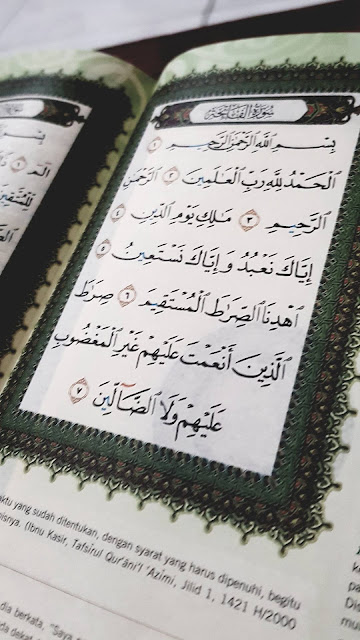 سُورَةُ الْفَاتِحَةِ
بِسْمِ اللَّهِ الرَّحْمَٰنِ الرَّحِيمِ ١
الْحَمْدُ لِلَّهِ رَبِّ الْعَالَمِينَ ٢ الرَّحْمَٰنِ
الرَّحِيمِ ٣ مَالِكِ يَوْمِ الدِّينِ ٤
إِيَّاكَ نَعْبُدُ وَإِيَّاكَ نَسْتَعِينُ ٥
اهْدِنَا الصِّرَاطَ الْمُسْتَقِيمَ ٦ صِرَاطَ
الَّذِينَ أَنْعَمْتَ عَلَيْهِمْ غَيْرِ الْمَغْضُوبِ
عَلَيْهِمْ وَلَا الضَّالِّينَ ٧
بِسْمِ
الم ١
yang sudah ditentukan, dengan syarat yang harus dipenuhi, begitu
(Ibnu Kasir, Tafsīrul Qur'āni'l 'Azīmi, Jilid 1, 1421 H/2000
dia berkata, "Saya